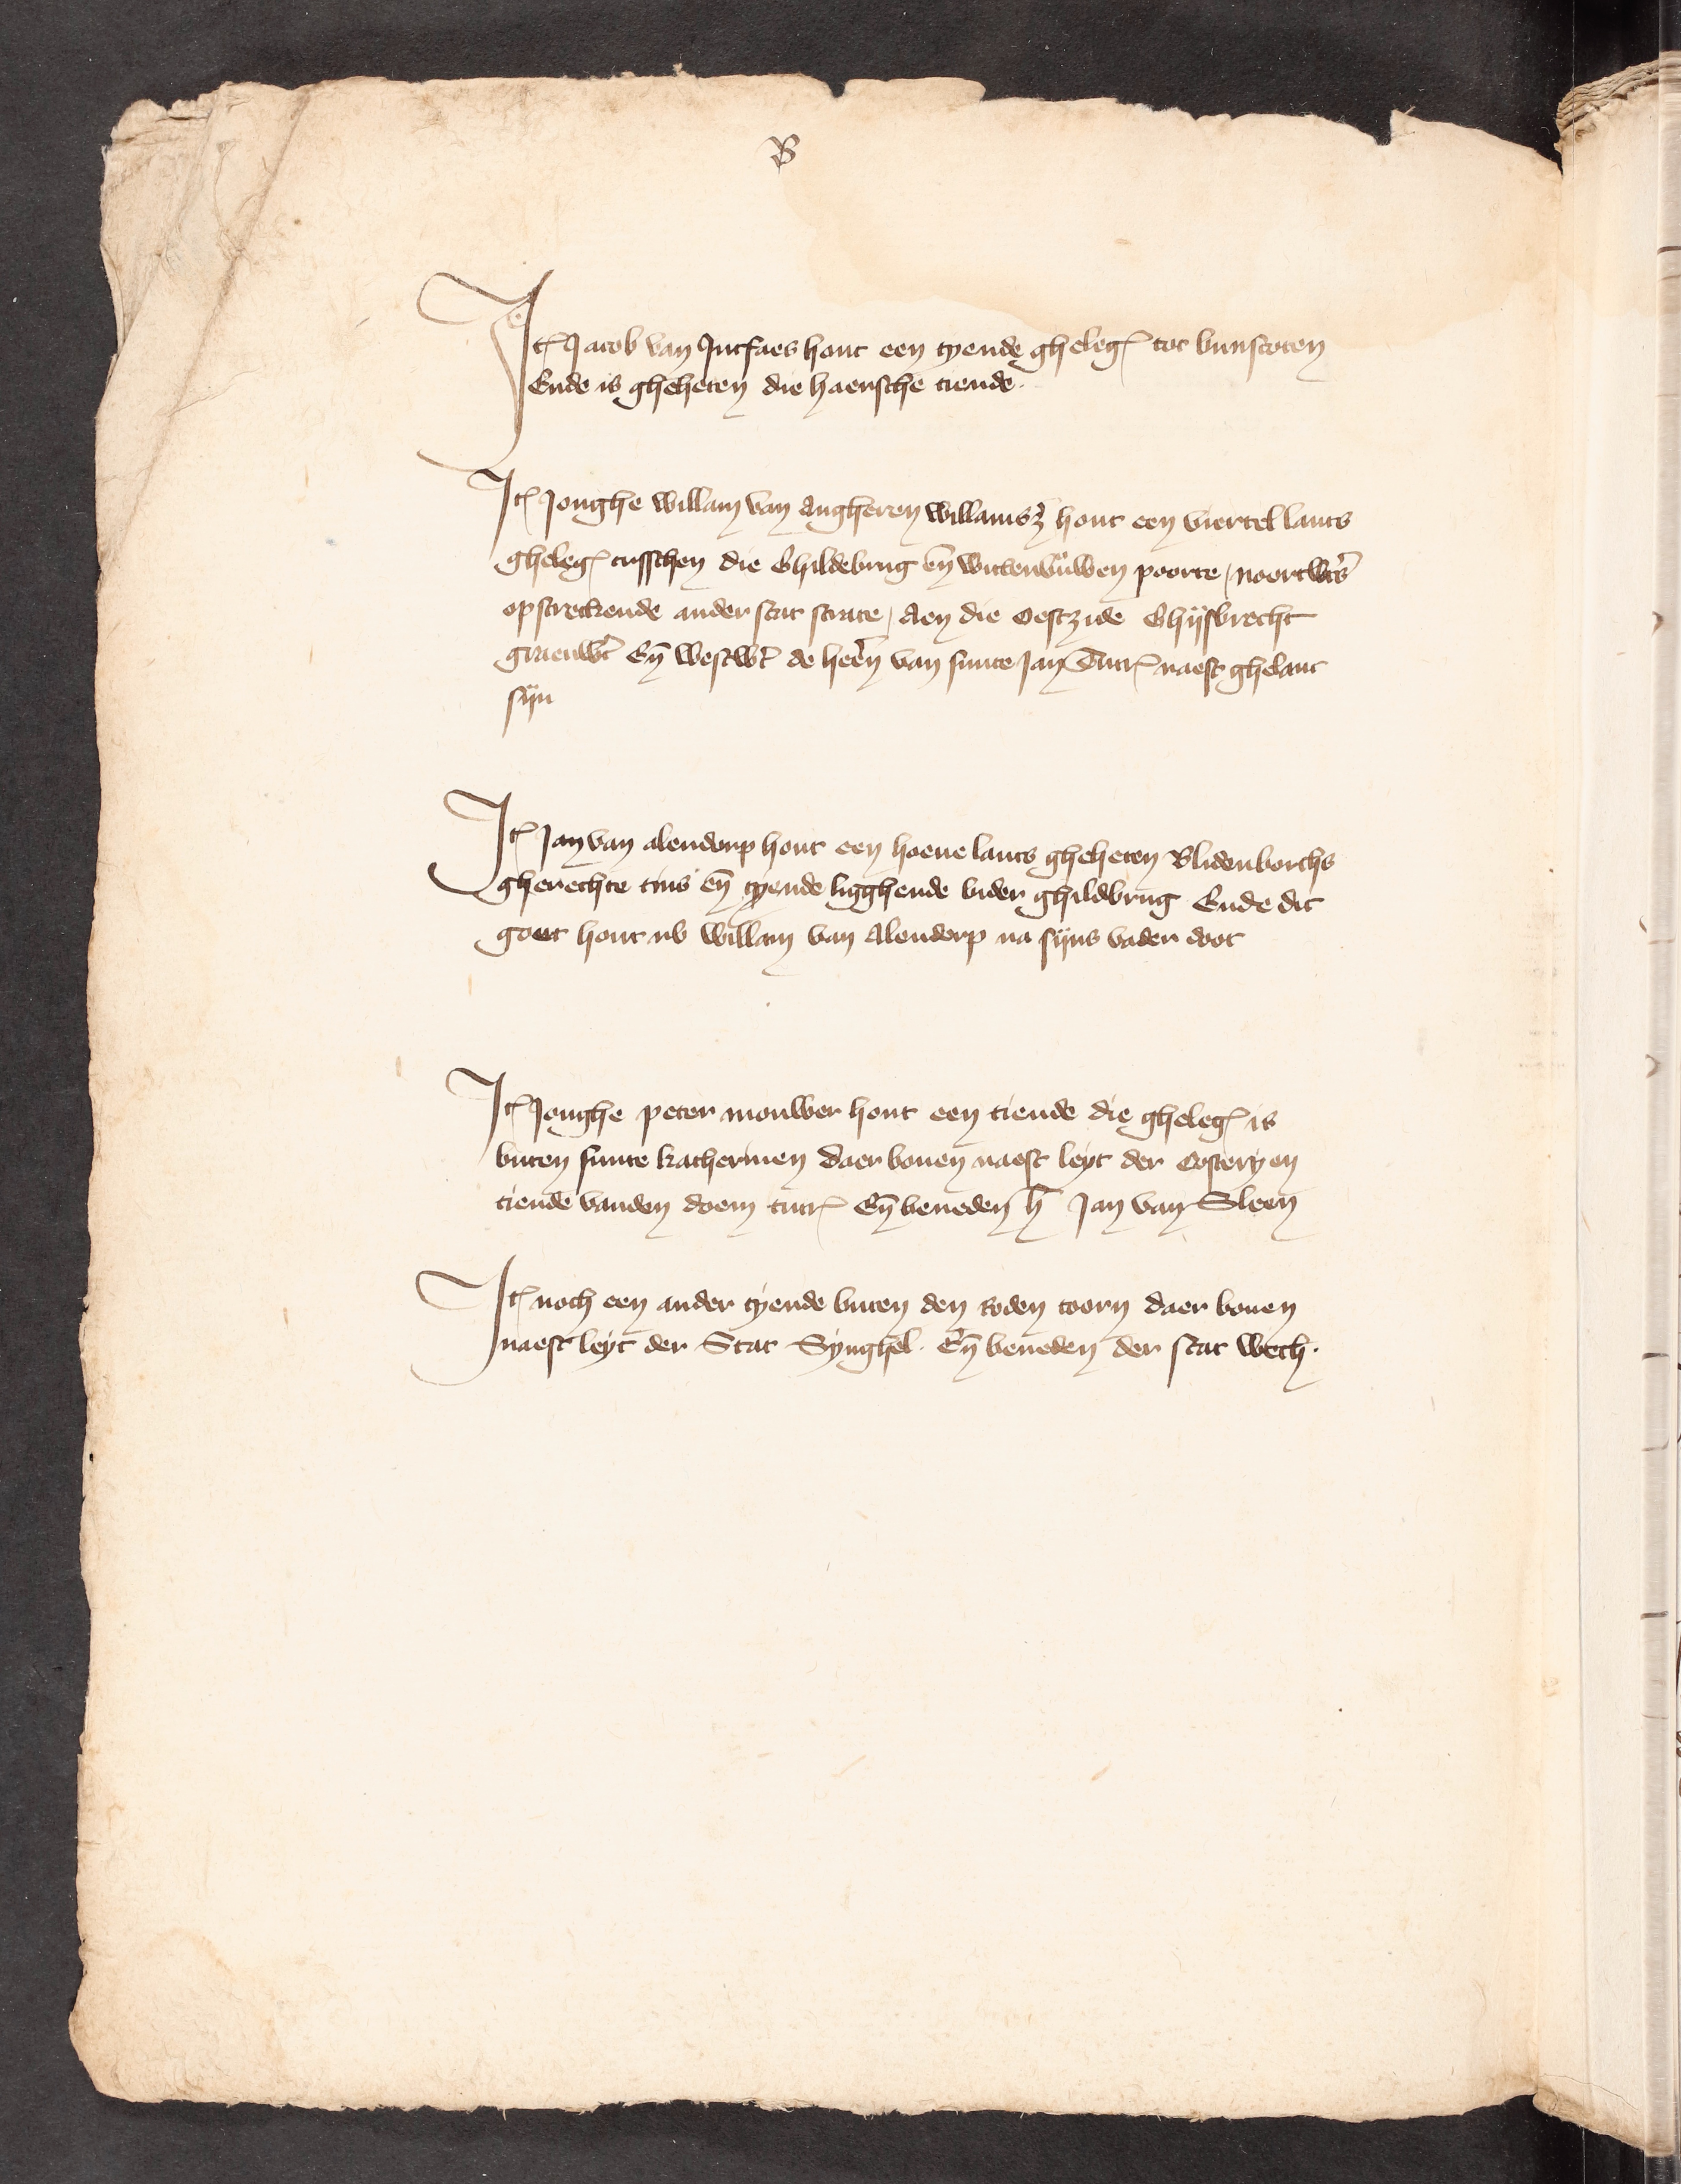 B
Jt Jacob van Jutfaes hout een tyende gheleg tot bunscoten
Ende is gheheten die haersche tiende.
Jt Jonghe willam van Angheren willamsz hout een viertel lants
gheleg tusschen die Ghildebrug en wittevrůwen poorte / noortwts
opstreckende ander stat strate / Aen die Oestzide Ghijsbrecht
grauwt En westwt de heren van sunte Jan Tutr naest ghelant
sijn
Jt Jan van alendorp hout een hoeue lants gheheten Blidenborchs
gherechte tins en tyende ligghende bider ghildbrug Ende dit
goet hout nv willam van Alendorp na sijns vader doot
Jt Jonghe peter mouwer hout een tiende die gheleg is
buten sunte katherinen daer bouen naest leyt der Costeryen
tiende vanden doem tutr En beneden h Jan van Sleen
Jt noch een ander tyende buten den roden toorn daer bouen
naest leyt der Stat Synghel. En beneden der stat wech.